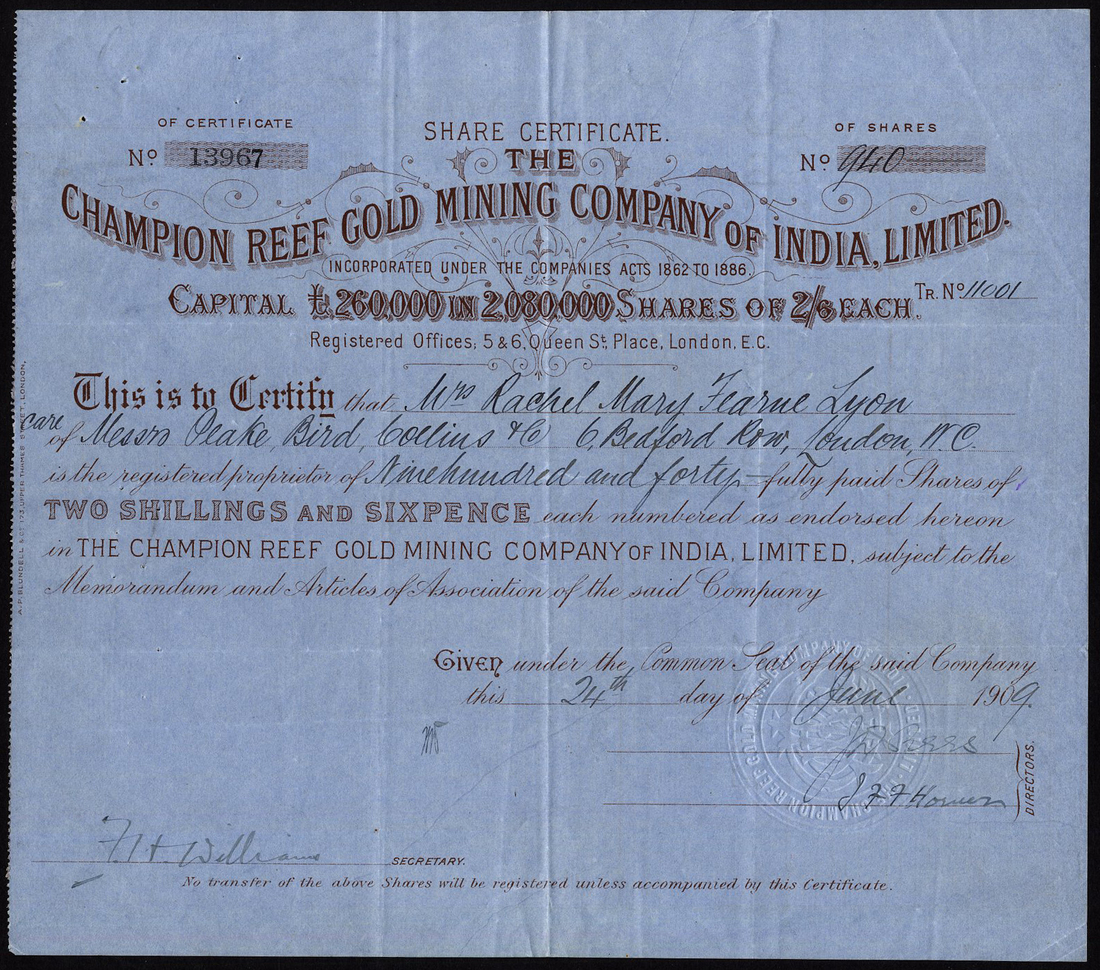 OF CERTIFICATE
No. 13967
SHARE CERTIFICATE.
OF SHARES
No. 940
THE
CHAMPION REEF GOLD MINING COMPANY OF INDIA, LIMITED.
INCORPORATED UNDER THE COMPANIES ACTS 1862 TO 1886.
CAPITAL £260,000 IN 2,080,000 SHARES OF 2/6 EACH.
TR. No. 11001
Registered Offices; 5 & 6, Queen St. Place, London, E.C.
This is to Certify that Mrs Rachel Mary Fearne Lyon
care
of Messrs Peake, Bird, Collins & Co 6, Bedford Row, London, W.C.
is the registered proprietor of Ninehundred and forty fully paid Shares of
TWO SHILLINGS AND SIXPENCE each numbered as endorsed hereon
in THE CHAMPION REEF GOLD MINING COMPANY OF INDIA, LIMITED, subject to the
Memorandum and Articles of Association of the said Company
Given under the Common Seal of the said Company
this 24th day of June 1909.
DIRECTORS.
F. H. Williams SECRETARY.
No transfer of the above Shares will be registered unless accompanied by this Certificate.
A.P. BLUNDELL & Co. 173, UPPER THAMES STREET, LONDON,